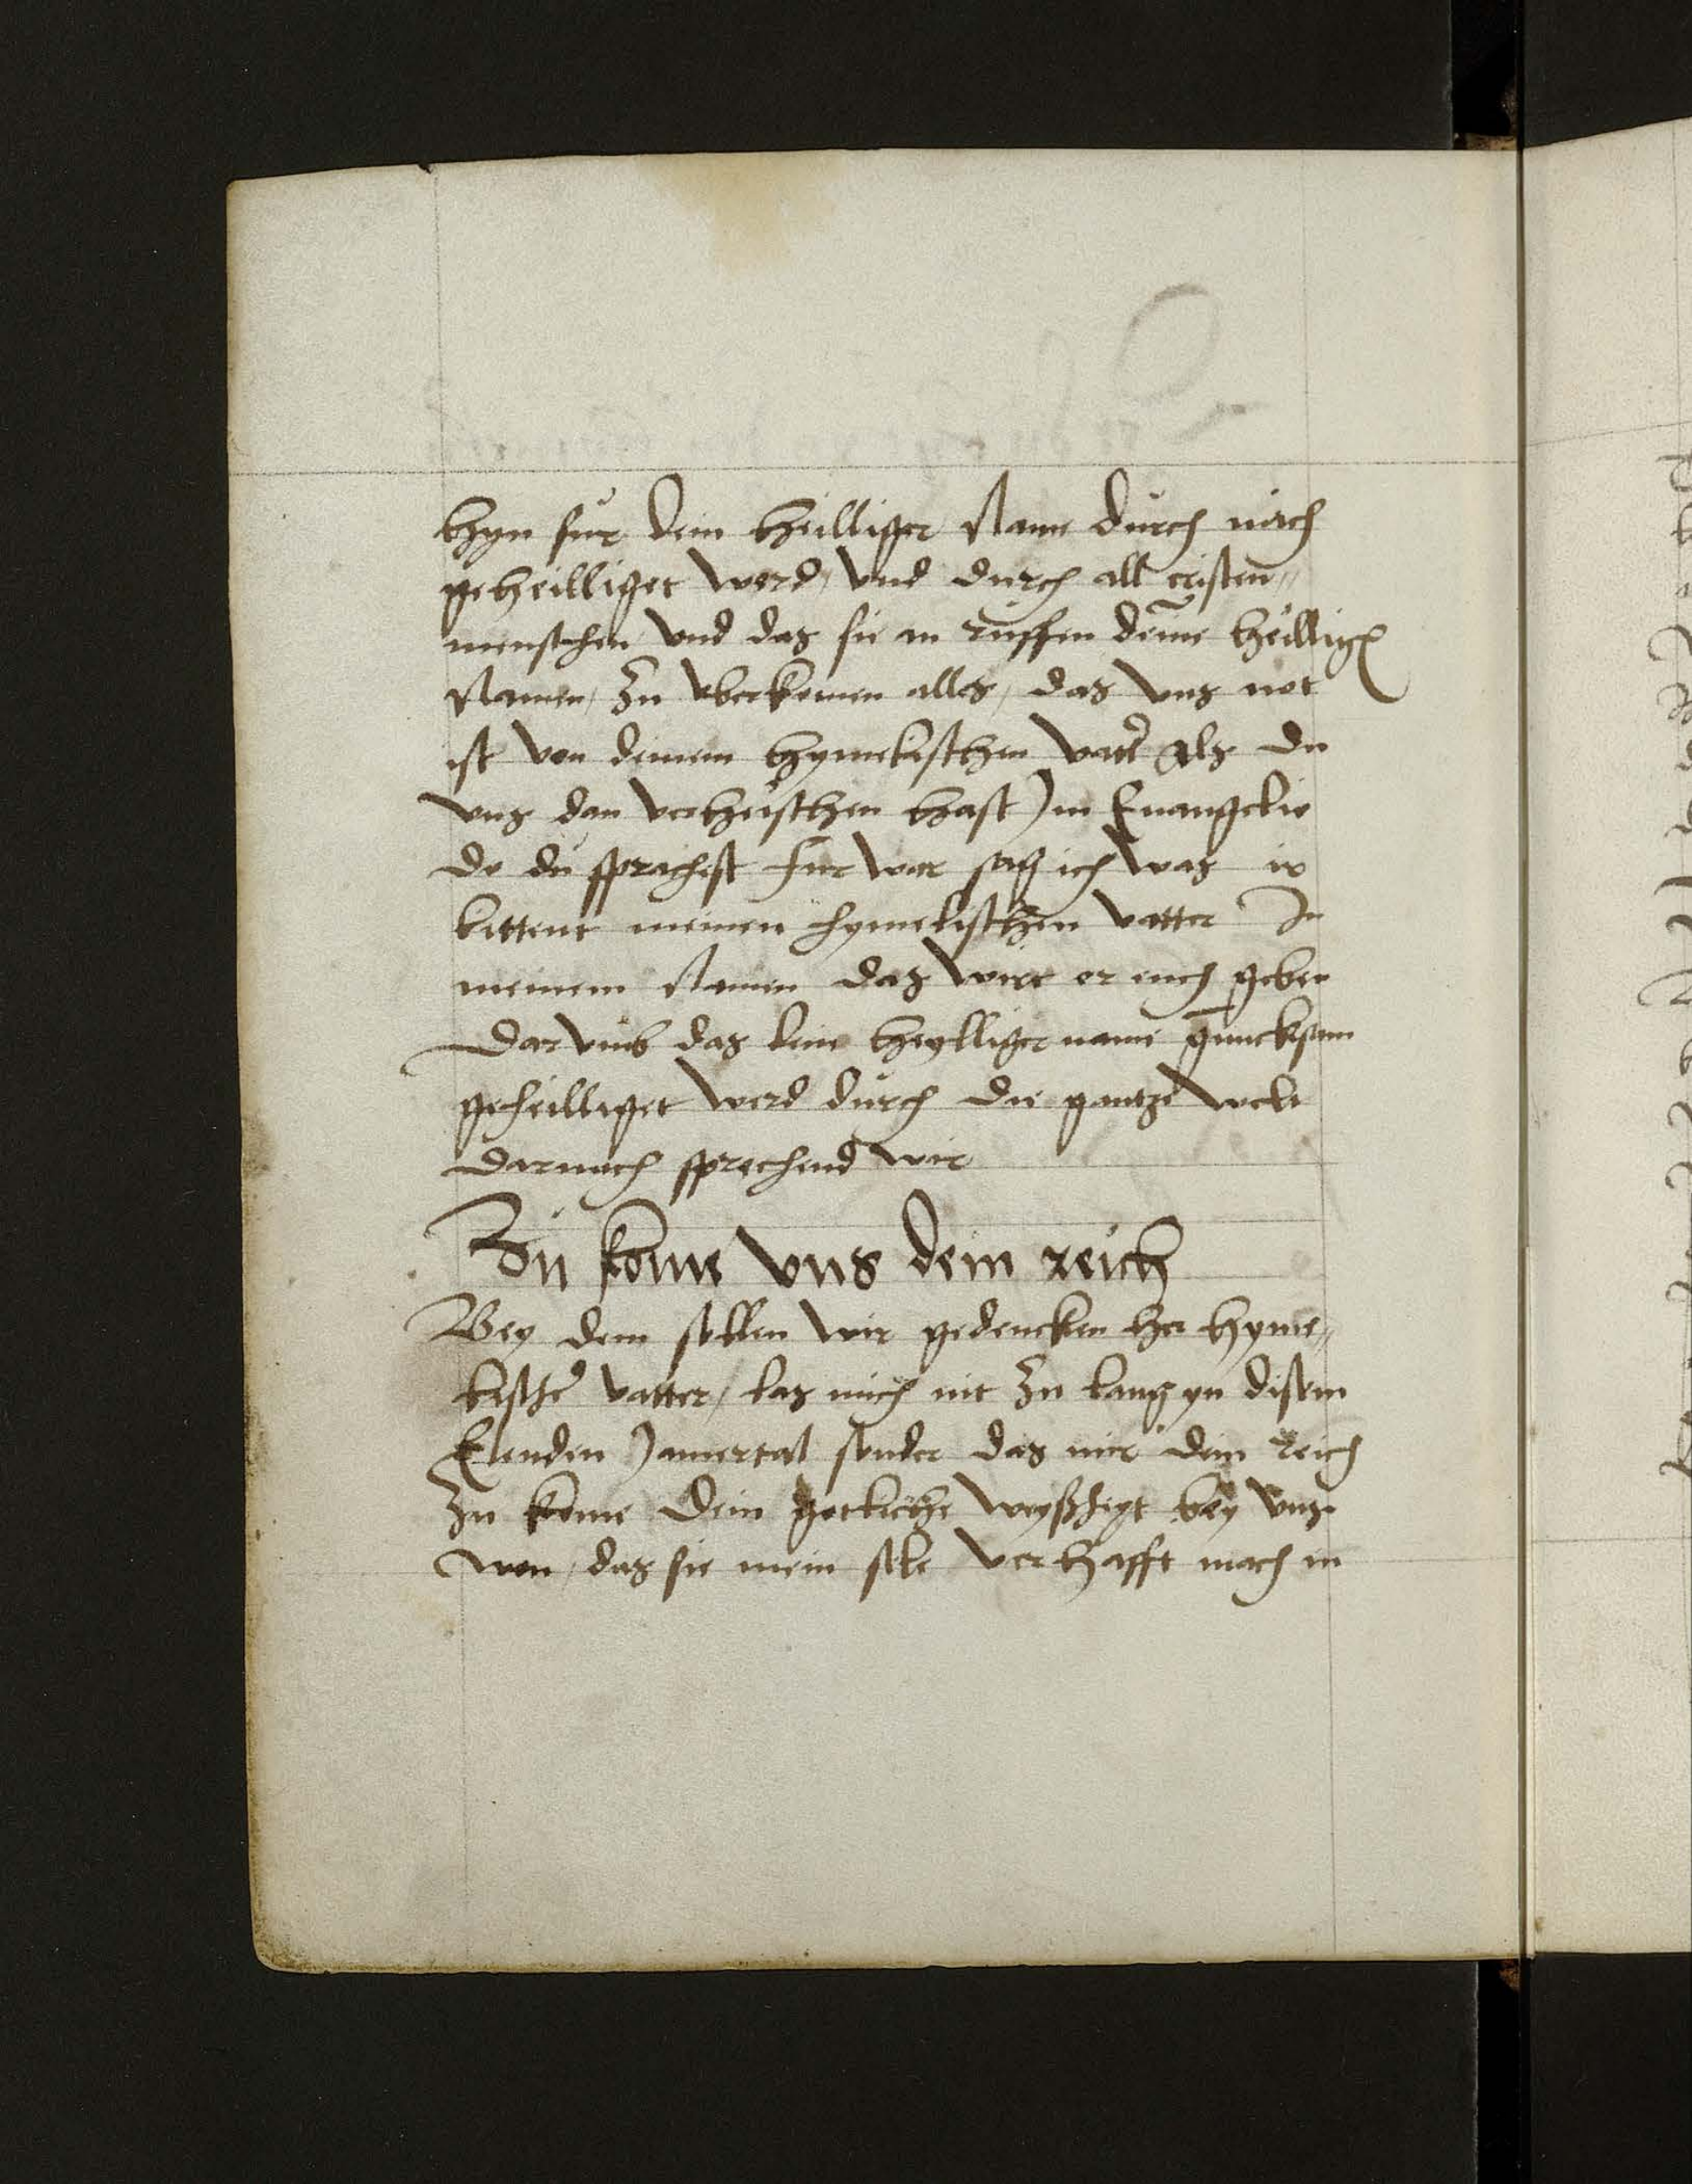 hyn fur dein heilliger Name durch mich
geheilliget werd, vnd durch all cristen„
menschen vnd das sie an ruffen deine heillig
Namen, zu vberkomen alles, das vns not
ist von deinem hymelischen vater als du
vns dan verheischen hast Jm Euangelio
do du sprichest fur war sag ich was ir
bittent meinen hymelischen vatter In
meinem Namen das wirt er euch geben
Dar vmb das dein heylliger name
geheilliget werd durch die gantze welt
darnach sprechend wir
Zu kome vns dein reich
Bey dem sollen wir gedencken her hyme„
lischer vatter, las mich nit zu lang yn disem
Elenden Jamertal sonder das mir dein reich
zu kome dein gotliche weyßheyt bey vns
won, das sie mein sele verhafft mach in